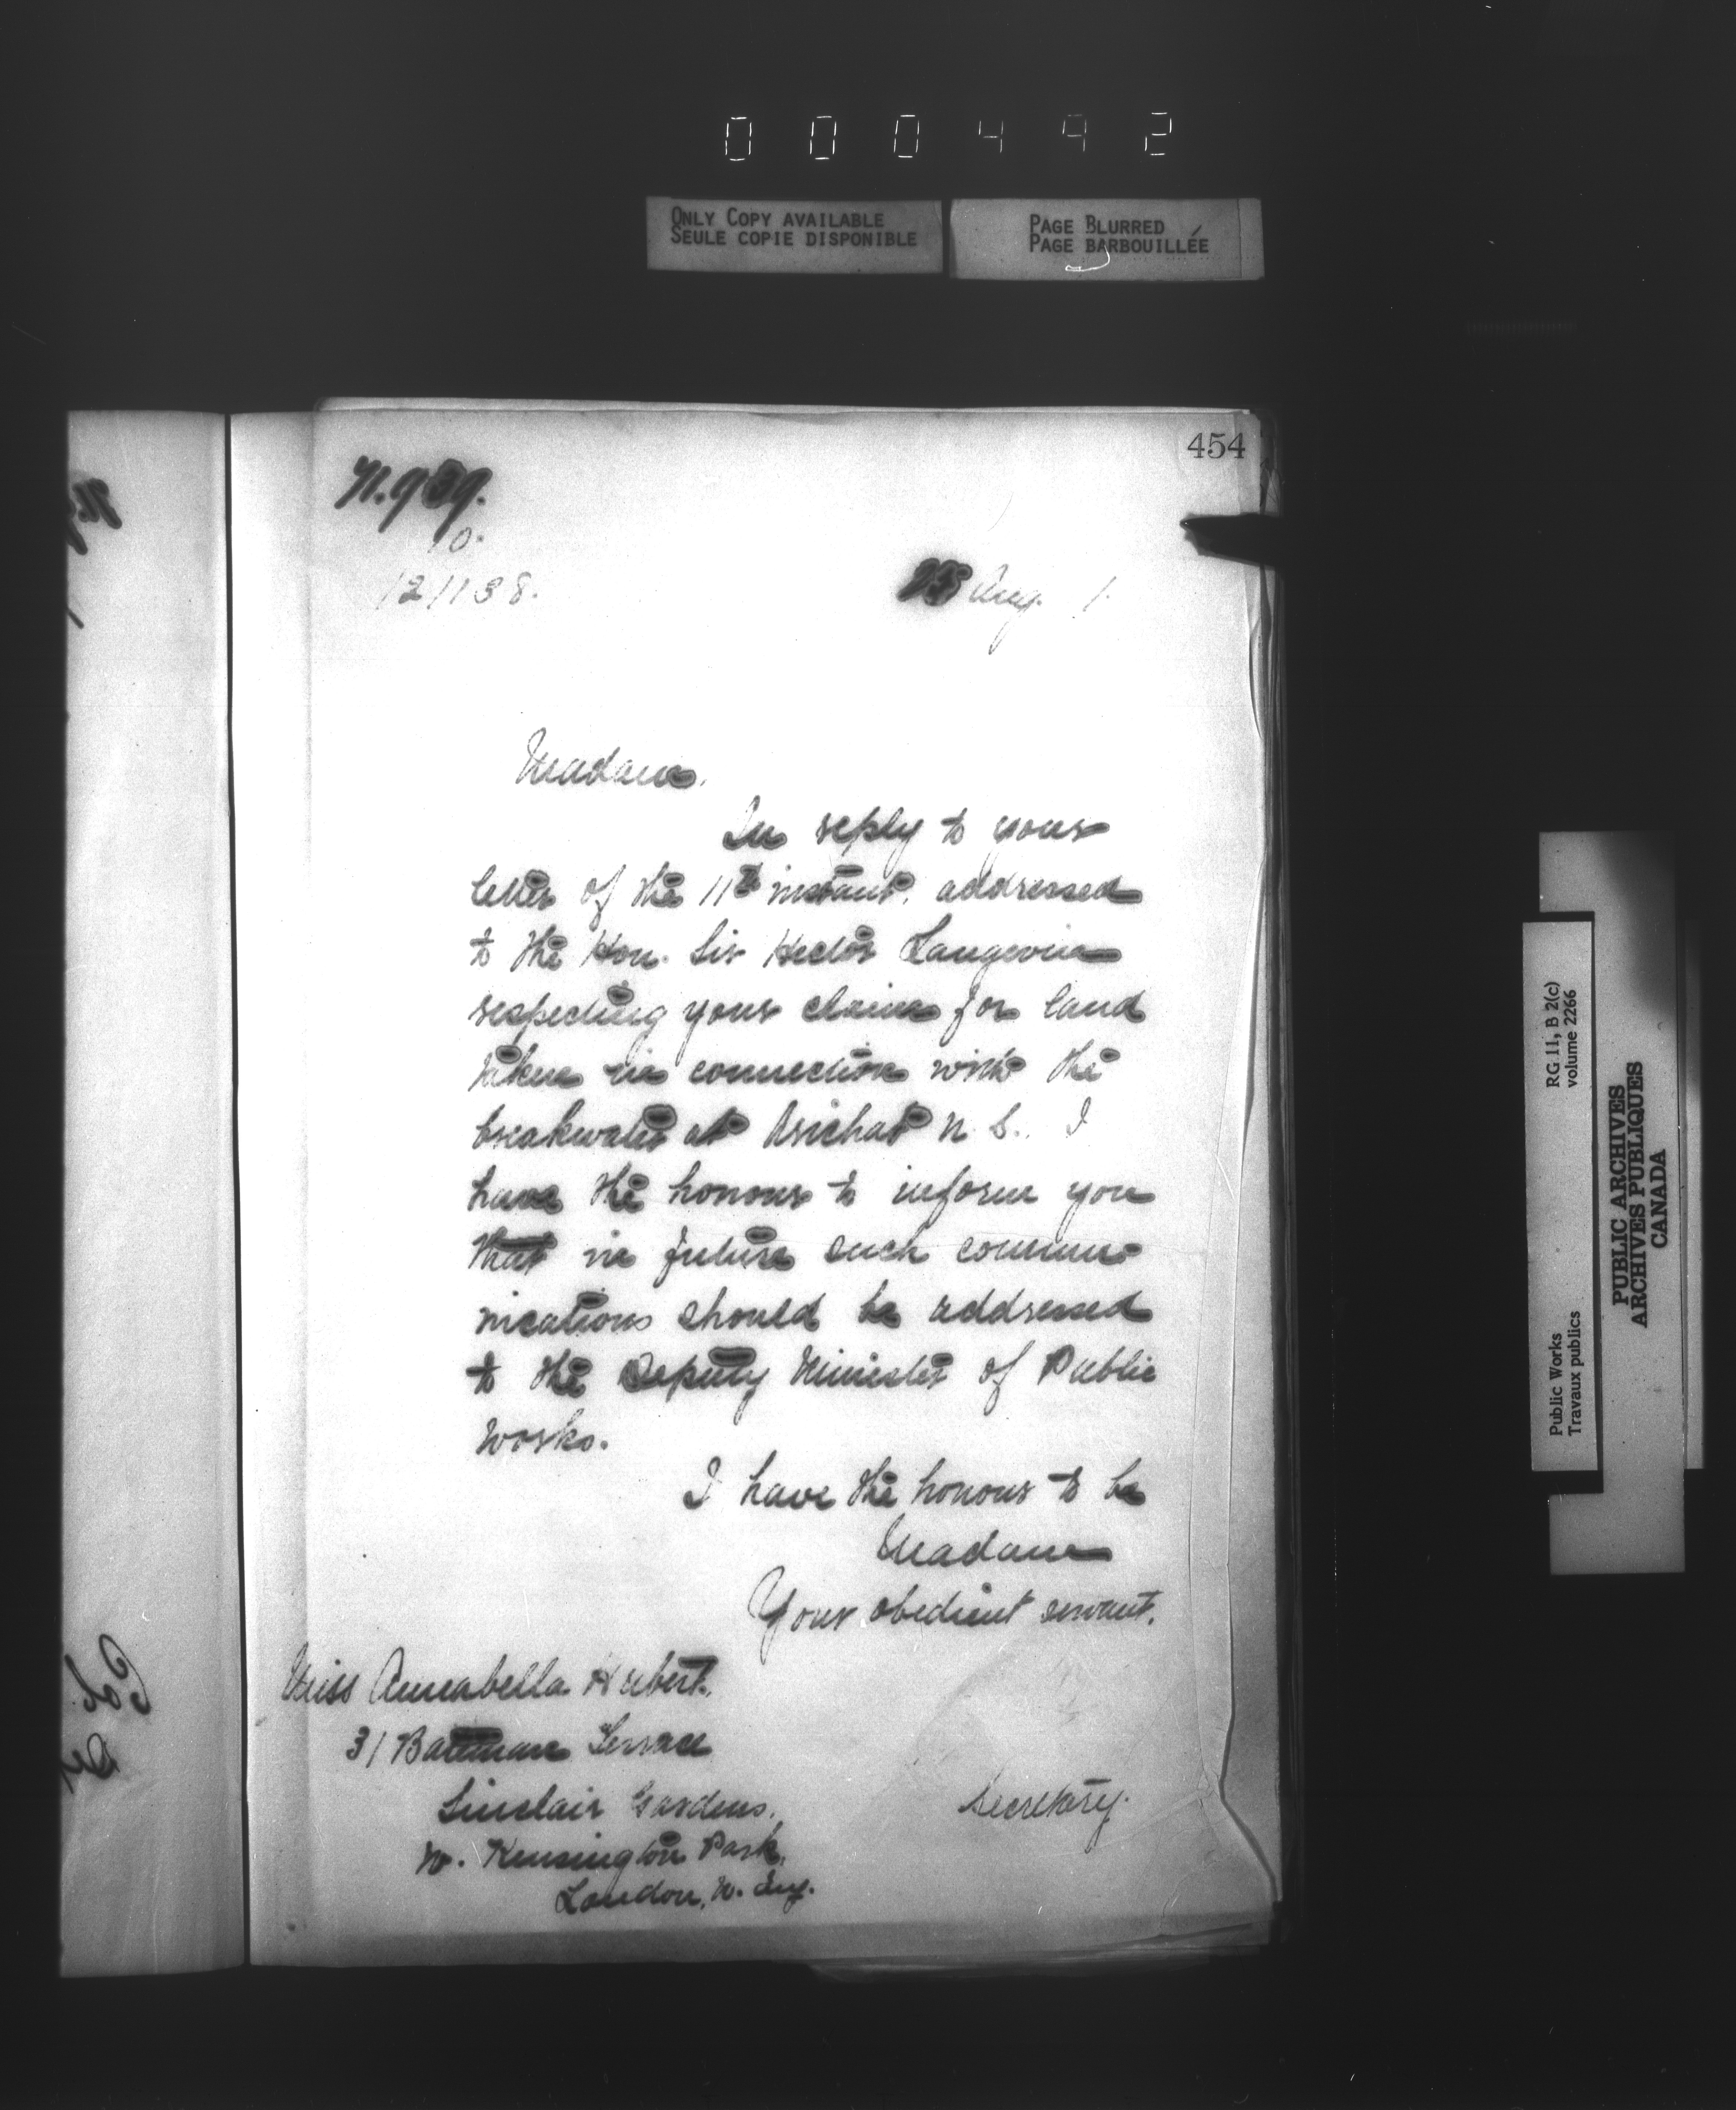 000492
ONLY COPY AVAILABLE
SEULE COPIE DISPONIBLE
PAGE BLURRED
PAGE BARBOUILLÉE
454
N.939.
10.
121138.
Aug. 1.
Madam,
In reply to your
letter of the 11th instant, addressed
to the Hon. Sir Hector Langevin
respecting your claim for land
taken in connection with the
breakwater at Arichat N.S., I
have the honour to inform you
that in future such commu-
nications should be addressed
to the Deputy Minister of Public
Works.
I have the honour to be
Madam
Your obedient servant.
Miss Annabella Hubert.
31 Terrace
Sinclair Gardens.
W. Kensington Park,
London, W. Eng.
Secretary.
Public Works
Travaux publics
RG 11, B 2(c)
volume 2266
PUBLIC ARCHIVES
ARCHIVES PUBLIQUES
CANADA